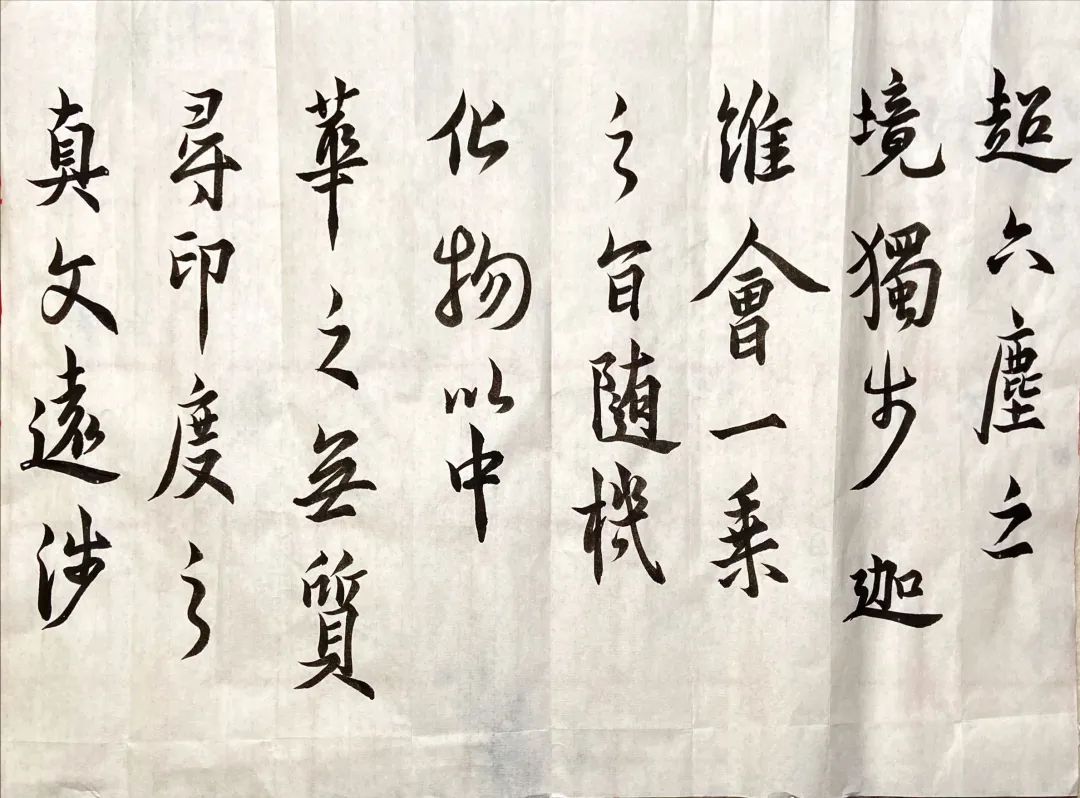 超六塵之
境獨步迦
維會一乗
之旨随機
化物以中
華之無質
尋印度之
真文遠涉